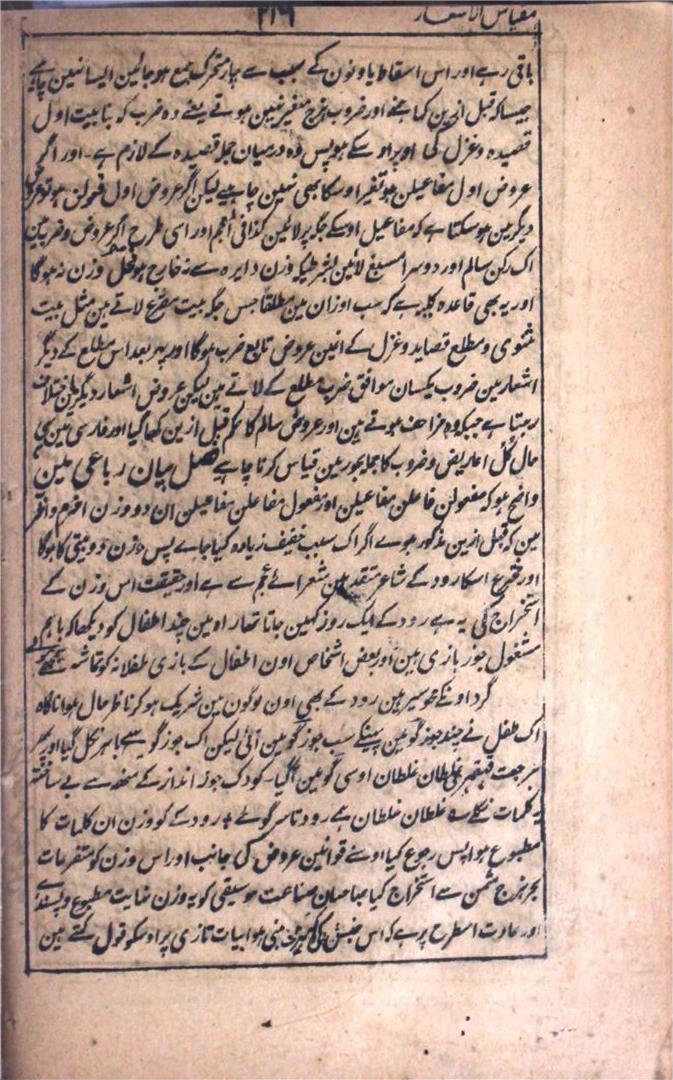 مقیاس الاشعار ۲۱۶
باقی رہے اور اس اسقاط یا و نون کے سبب سے چار متحرک جمع ہو جائین ایسا نہین چاہیے
جیسا کہ قبل ازین کہا ہے اور ضروب ہزج متغیر نہین ہوتے یعنے وہ ضرب کہ بنا بیت اول
قصیدہ و غزل کی اوپر اوسکے ہو پس وہ درمیان جملہ قصیدہ کے لازم ہے ۔ اور اگر
عروض اول مفاعیلن ہو تغیر اوسکا بھی نہین چاہیے لیکن اگر عروض اول فعولن ہو تو عروض
دیگر مین ہو سکتا ہے کہ مفاعیل اوسکے جگہ پر لائین کذا فی المعجم اور اسی طرح اگر عروض و ضرب مین
اک رکن سالم اور دوسرا مسبغ لائین بشرطیکہ وزن دایرہ سے نہ خارج ہو وزن نہ ہوگا
اور یہ بھی قاعدہ کلیہ ہے کہ سب اوزان مین مطلقاً جس جگہ بیت مصرع لاتے ہین مثل بیت
مثنوی و مطلع قصاید و غزل کے انمین عروض تابع ضرب ہوگا اور پہر بعد اس مطلع کے دیگر
اشعار مین ضروب یکسان موافق ضرب مطلع کے لاتے ہین لیکن عروض اشعار دیگر مین اختلاف
رہتا ہے جبکہ وہ مزاحف ہوتے ہین اور عروض سالم کا حکم قبل ازین کہا گیا اور فارسی مین یہی
حال کل اعاریض و ضروب کا جملہ بحور مین قیاس کرنا چاہیے فصل بیان رباعی مین
واضح ہو کہ مفعولن فاعلن مفاعیلن اور مفعول مفاعلن مفاعیلن ان دو وزن اخرم و اخرب
مین کہ قبل ازین مذکور ہوے اگر اک سبب خفیف زیادہ کیا جاے پس وزن دوبیتی کا ہوگا
اور مخترع اسکا رودکے شاعر متقدمین شعراے عجم سے ہے اور حقیقت اس وزن کے
استخراج کی یہ ہے رودکے ایک روز کہین جاتا تھا راہ مین چند اطفال کو دیکھا کہ باہم
مشغول جوز بازی ہین اور بعض اشخاص اون اطفال کے بازی طفلانہ کو تماشہ سمجھکے
گرد اونکے محو سیر ہین رودکے بھی اون لوگون مین شریک ہو کر ناظر حال ہوا ناگاہ
اک طفل نے چند جوز گو مین پھینکے سب جوز گو مین آئی لیکن اک جوز گو سے باہر نکل گیا اور پھر
برجعت قہقہری غلطان غلطان اوسی گو مین آگیا ۔ کودک جوز انداز کے منھ سے بے ساختہ
یہ کلمات نکلے غلطان غلطان ہمے رود تا سر گو رودکے کو وزن ان کلمات کا
مطبوع ہوا پس رجوع کیا اوسنے قوانین عروض کی جانب اور اس وزن کو متفرعات
بحر ہزج مثمن سے استخراج کیا صاحبان صناعت موسیقی کو یہ وزن نہایت مطبوع و پسند
اور عادت اسطرح پر ہے کہ اس جنس مبنی ہوا ابیات تازی پر اوسکو قول کہتے ہین